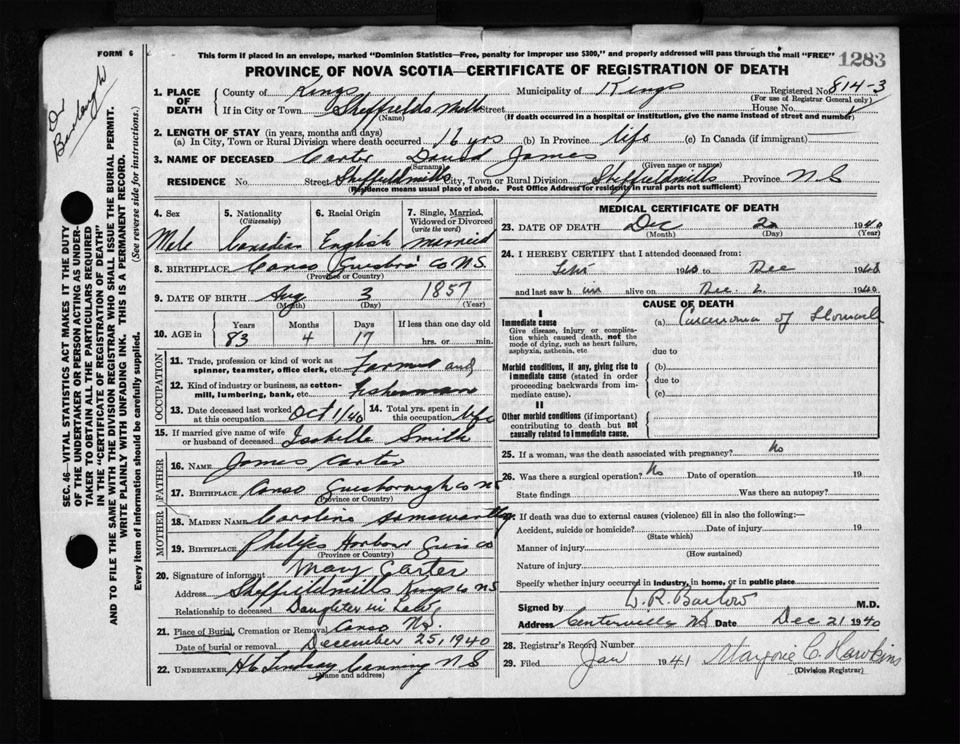 FORM 6
This form if placed in an envelope, marked "Dominion Statistics—Free, penalty for improper use $300," and properly addressed will pass through the mail "FREE"
1283
PROVINCE OF NOVA SCOTIA—CERTIFICATE OF REGISTRATION OF DEATH
Dr Burleigh
SEC. 46—VITAL STATISTICS ACT MAKES IT THE DUTY
OF THE UNDERTAKER OR PERSON ACTING AS UNDER-
TAKER TO OBTAIN ALL THE PARTICULARS REQUIRED
IN THE "CERTIFICATE OF REGISTRATION OF DEATH"
AND TO FILE THE SAME WITH THE DIVISION REGISTRAR WHO SHALL ISSUE THE BURIAL PERMIT.
WRITE PLAINLY WITH UNFADING INK. THIS IS A PERMANENT RECORD.
Every item of information should be carefully supplied. (See reverse side for instructions.)
1. PLACE OF DEATH County of Kings Municipality of Kings Registered No. 814-3
(For use of Registrar General only)
If in City or Town Sheffields Mills Street House No.
(Name) (If death occurred in a hospital or institution, give the name instead of street and number)
2. LENGTH OF STAY (in years, months and days)
(a) In City, Town or Rural Division where death occurred 16 yrs (b) In Province life (c) In Canada (if immigrant)
3. NAME OF DECEASED Carter David James
(Surname) (Given name or names)
RESIDENCE No. Street Sheffieldmills City, Town or Rural Division Sheffieldmills Province N S
(Residence means usual place of abode. Post Office Address for residents in rural parts not sufficient)
4. Sex 5. Nationality (Citizenship) 6. Racial Origin 7. Single, Married, Widowed or Divorced (write the word)
Male Canadian English married
8. BIRTHPLACE Canso Co NS
(Province or Country)
9. DATE OF BIRTH Aug 3 1857
(Month) (Day) (Year)
10. AGE in Years Months Days If less than one day old
83 4 17 hrs. or min.
OCCUPATION
11. Trade, profession or kind of work as spinner, teamster, office clerk, etc. Farmer and
12. Kind of industry or business, as cotton-mill, lumbering, bank, etc. Fisherman
13. Date deceased last worked at this occupation Oct 1/40 14. Total yrs. spent in this occupation life
15. If married give name of wife or husband of deceased Isabelle Smith
FATHER
16. NAME James Carter
17. BIRTHPLACE Canso Guysborough co NS
(Province or Country)
MOTHER
18. MAIDEN NAME Caroline
19. BIRTHPLACE Philips Harbour Co
(Province or Country)
20. Signature of informant Mary Carter
Address Sheffieldmills Kings Co NS
Relationship to deceased Daughter in Law
21. Place of Burial, Cremation or Removal Canso N.S.
Date of burial or removal December 25, 1940
22. UNDERTAKER H C Lindsay Canning N S
(Name and address)
MEDICAL CERTIFICATE OF DEATH
23. DATE OF DEATH Dec 20 1940
(Month) (Day) (Year)
24. I HEREBY CERTIFY that I attended deceased from:
1940 to Dec 1940
and last saw him alive on Dec. 2 1940
CAUSE OF DEATH
I
Immediate cause
Give disease, injury or complication which caused death, not the mode of dying, such as heart failure, asphyxia, asthenia, etc
(a) Carcinoma of Stomach
due to
Morbid conditions, if any, giving rise to immediate cause (stated in order proceeding backwards from immediate cause).
(b)
due to
(c)
II
Other morbid conditions (if important) contributing to death but not causally related to immediate cause.
25. If a woman, was the death associated with pregnancy? No
26. Was there a surgical operation? No Date of operation 19
State findings Was there an autopsy?
27. If death was due to external causes (violence) fill in also the following:—
Accident, suicide or homicide? Date of injury 19
(State which)
Manner of injury
(How sustained)
Nature of injury
Specify whether injury occurred in industry, in home, or in public place
Signed by W. R. Barlow M.D.
Address Centerville NS Date Dec 21 1940
28. Registrar's Record Number
29. Filed Jan 1941 Marjorie C. Hawkins
(Division Registrar)